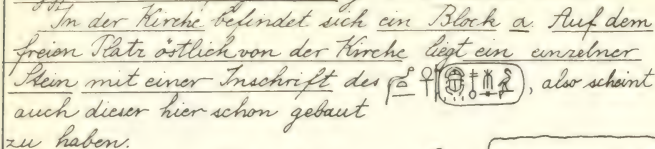 In der Kirche befindet sich ein Block a. Auf dem
freien Platz östlich von der Kirche liegt ein einzelner
Stein mit einer Inschrift des, also scheint
auch dieser hier schon gebaut
zu haben.